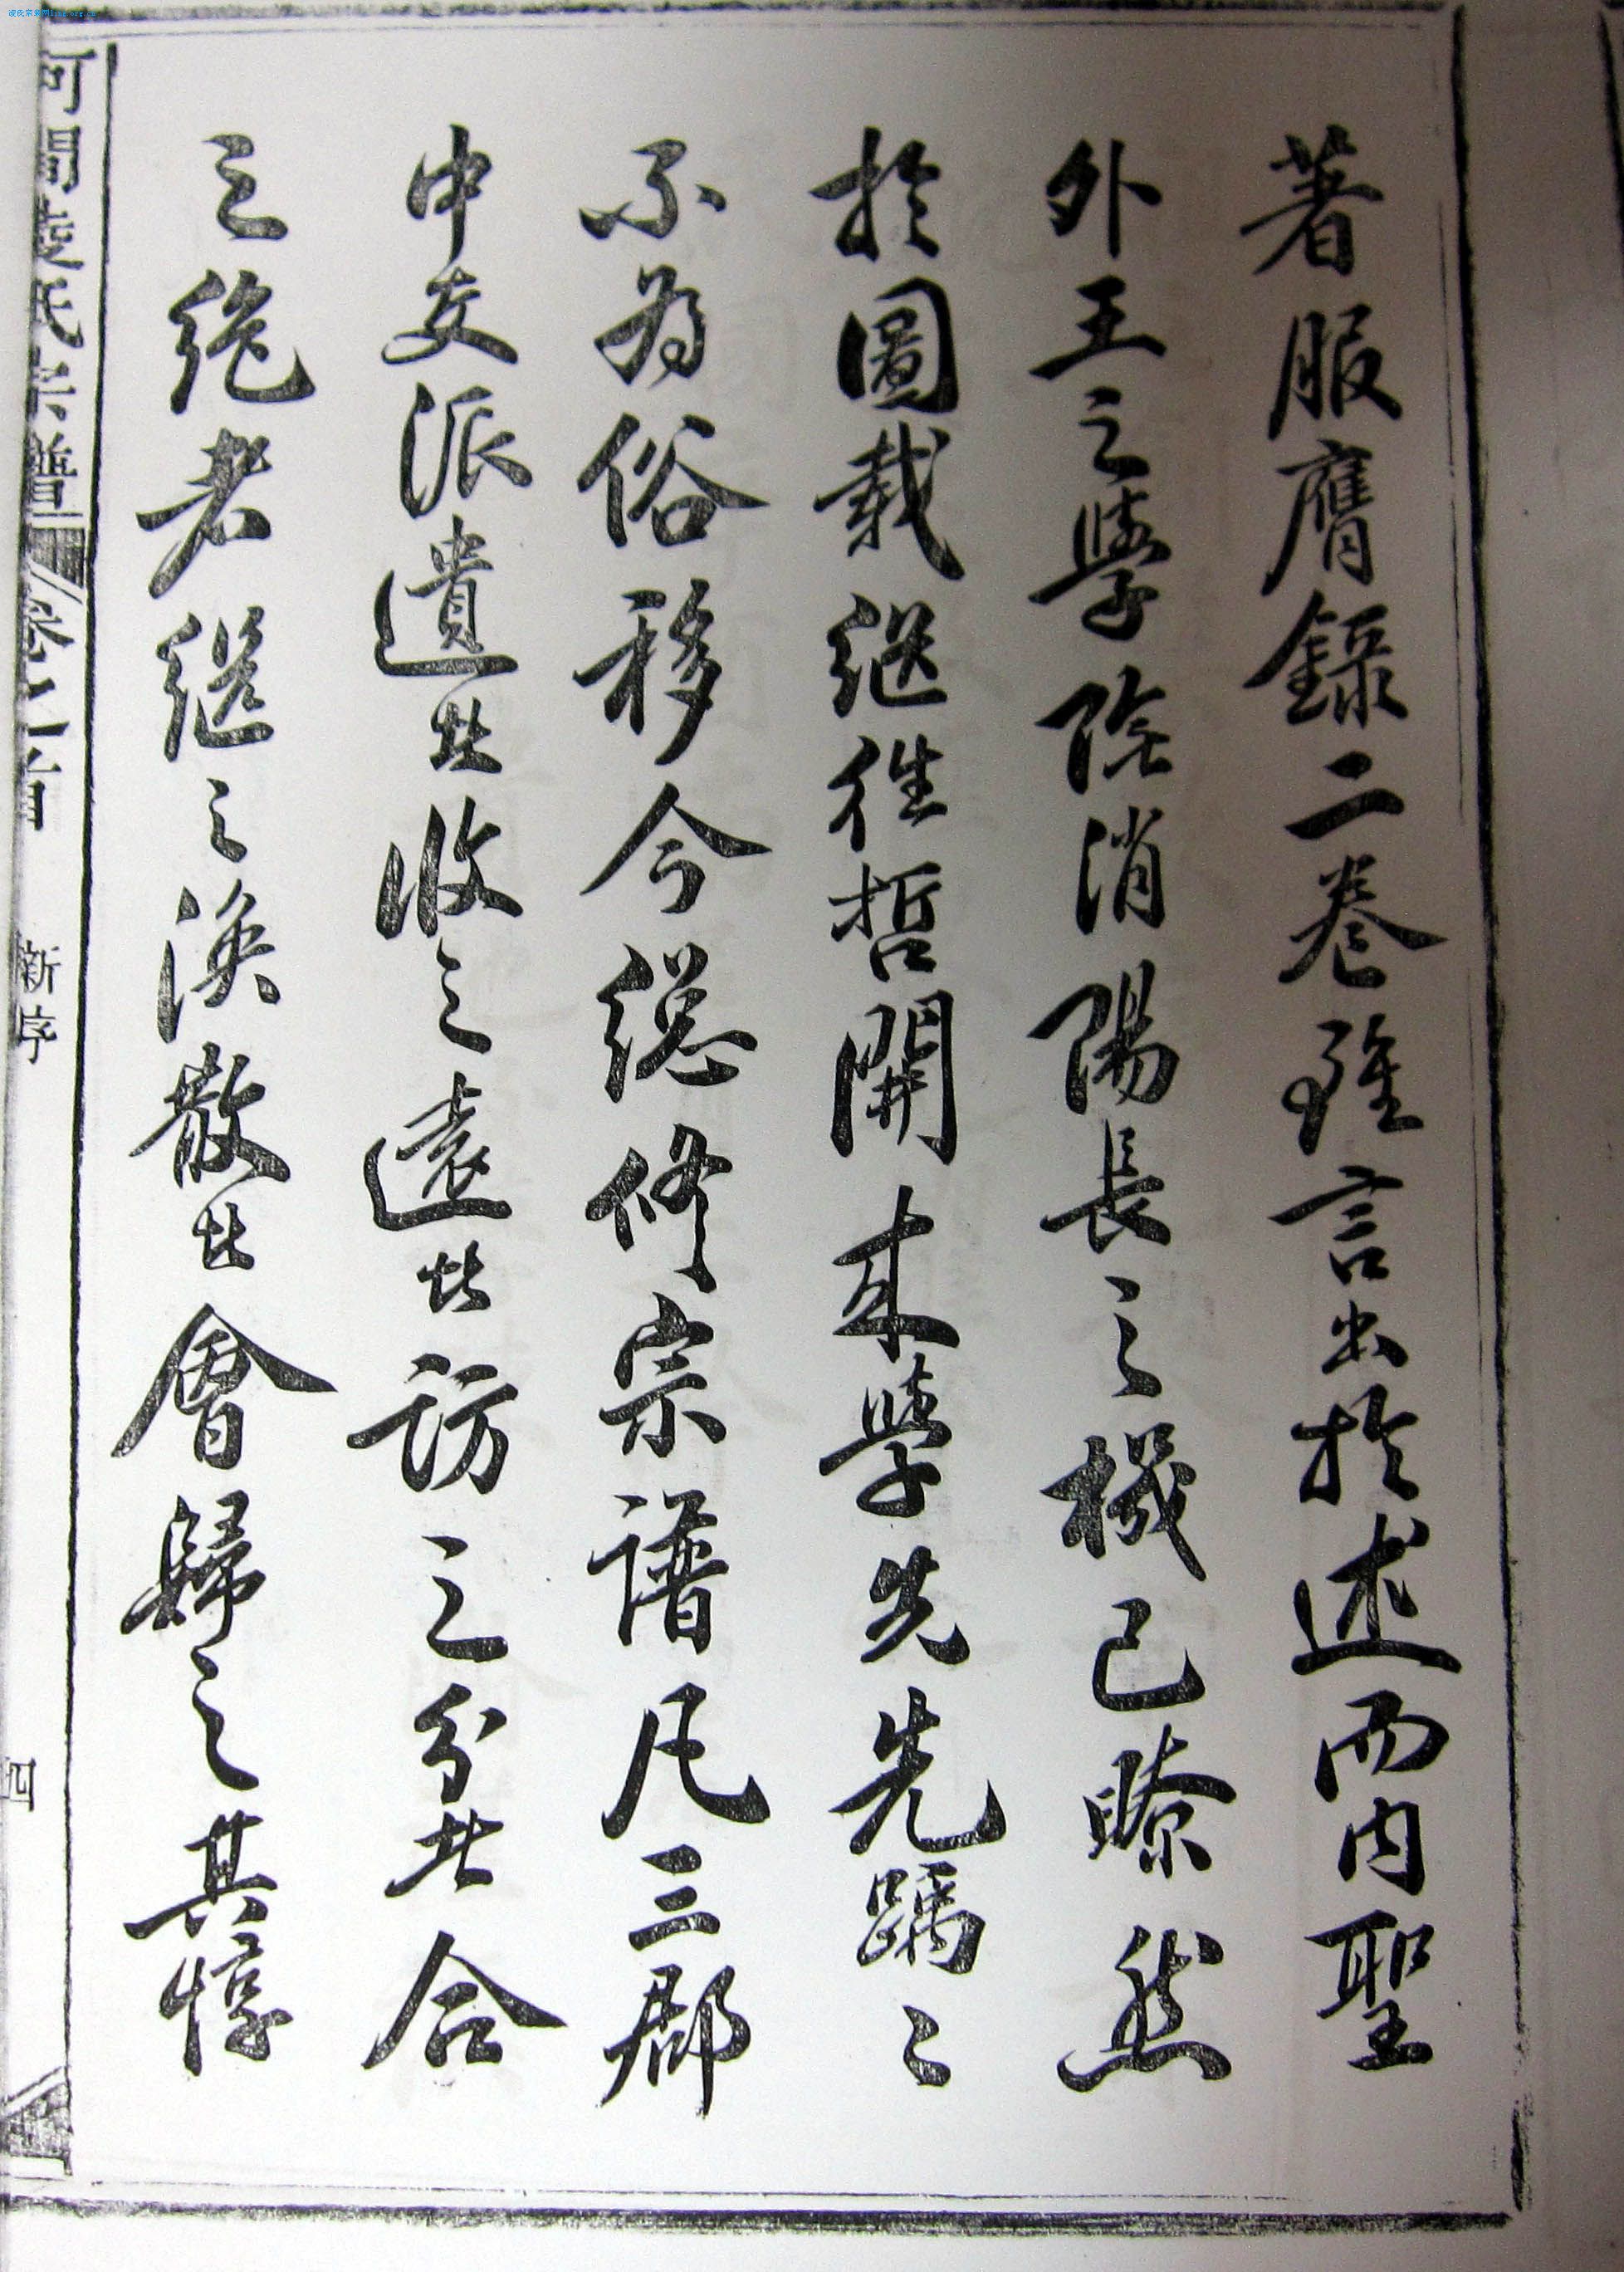 著服膺錄二卷雖言出於述而内聖
外王之學陰消陽長之機已瞭然
於圖載继往哲開來學先先蹰之
不为俗移今總修宗譜凡三郡
中支派遺者收之遠者訪之分者合
之絶者继之渙散者會歸之其惇
氏宗譜
卷之首
新序
四